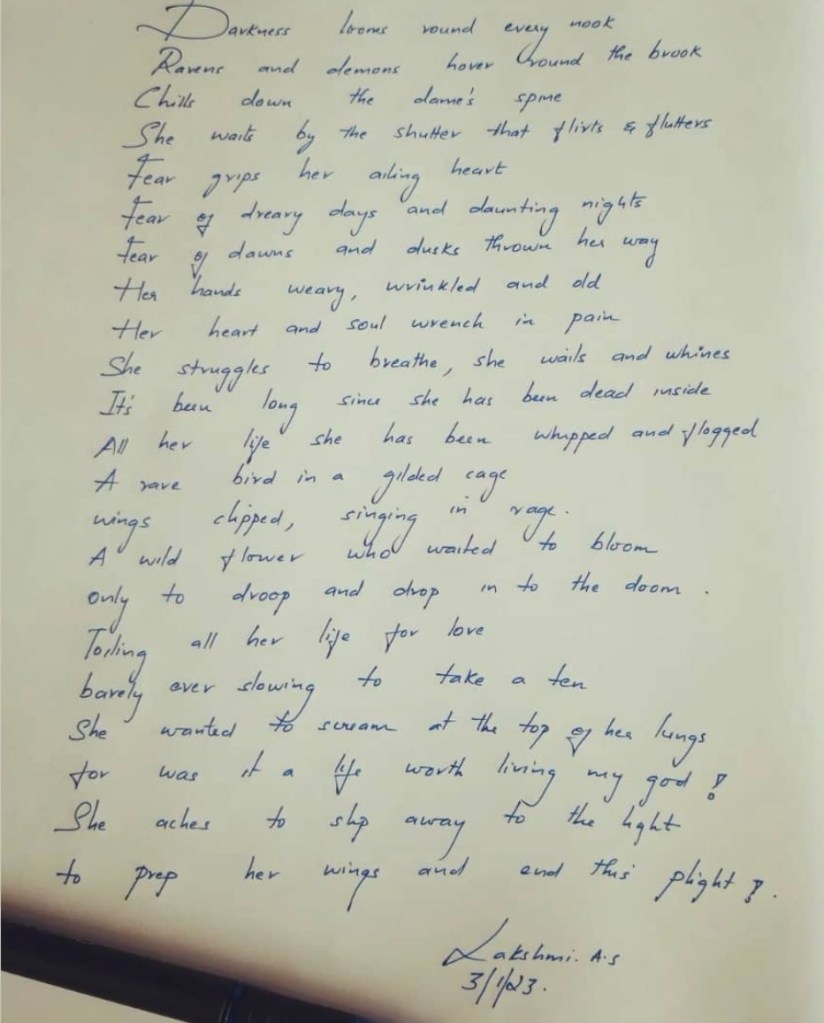 Darkness looms round every nook
Ravens and demons hover 'round the brook
Chills down the dame's spine
She waits by the shutter that flirts & flutters
Fear grips her ailing heart
Fear of dreary days and daunting nights
Fear of dawns and dusks thrown her way
Her hands weary, wrinkled and old
Her heart and soul wrench in pain
She struggles to breathe, she wails and whines
It's been long since she has been dead inside
All her life she has been whipped and flogged
A rare bird in a gilded cage
wings clipped, singing in rage.
A wild flower who waited to bloom
only to droop and drop in to the doom.
Toiling all her life for love
barely ever slowing to take a ten
She wanted to scream at the top of her lungs
for was it a life worth living my god!
She aches to slip away to the light
to prep her wings and end this plight!.
Lakshmi. A.S
3/1/23.